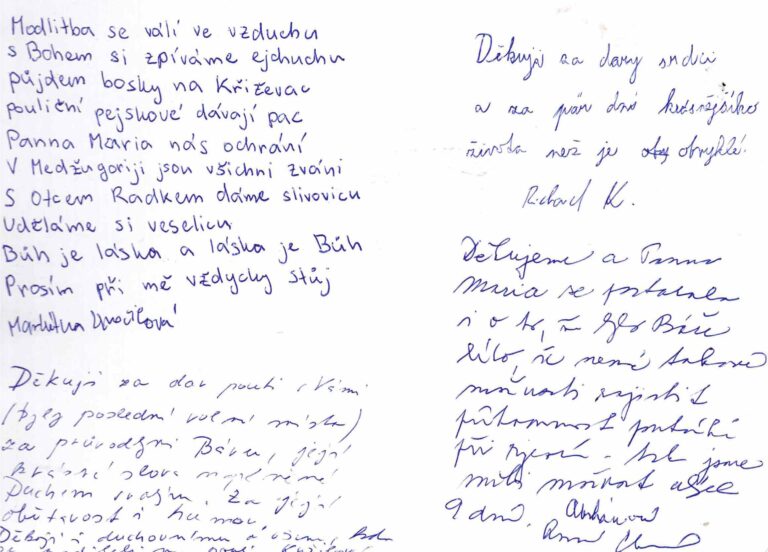 Modlitba se válí ve vzduchu
s Bohem si zpíváme ejchuchu
půjdem bosky na Križevac
pouliční pejskové dávají pac
Panna Maria nás ochrání
V Medžugoriji jsou všichni zváni
S Otcem Radkem dáme slivovicu
Uděláme si veselicu
Bůh je láska a láska je Bůh
Prosím při mě vždycky stůj
Markétka
Děkuji za dar pouti s Vámi
(byly poslední volná místa)
za průvodkyni Báru, její
krásná slova naplněné
Duchem svatým. Za její
obětavost i humor.
Děkuji i duchovnímu
Děkuji za dary srdci
a za pár dní krásnějšího
života než je obvyklé.
Richard K.
Děkujeme a Panna
Maria se postarala
i o to, že bylo Báře
líto, že nemá takové
možnosti zajistit
přítomnost
při zjevení - tak jsme
měli možnost
9 dní.